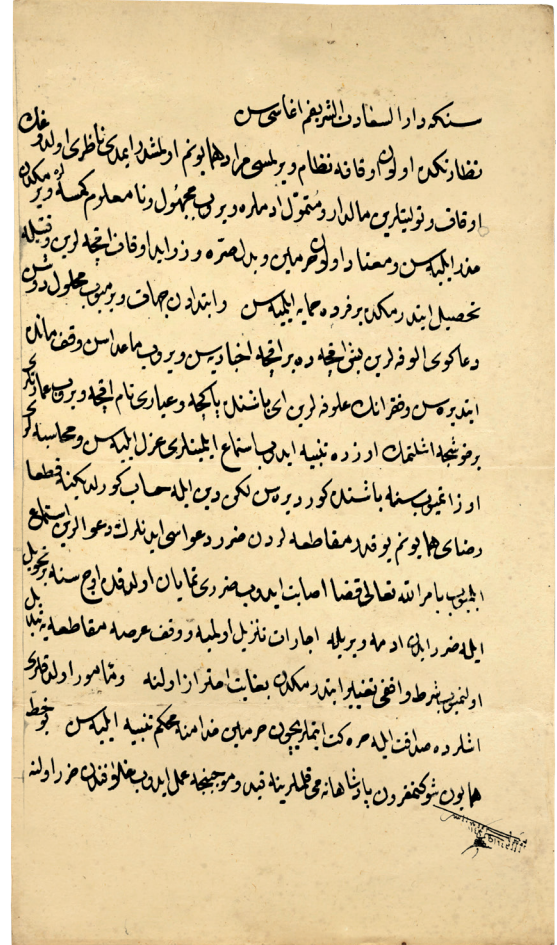 سنكه دار السعادة الشريفم اغاسى سن
نظارتكده اولان اوقافه نظام ويرلمسى مراد همايونم اولمشدر ايمدى ناظرى اولدوغك
اوقاف توليتلرين مالدار ومتمول ادملره ويروب مجهول ونامعلوم كمسنه يه ويرمكدن
حذر ايليه سن ومعتاد اولان حرمين وبلا صره وزوايد اوقاف اقچه لرين وقتيله
تحصيل ايتدرمكده بر فرده حمايه ايلميه سن وابتدادن جهات ويرميوب محلول دوشن
دعاكوى الوفه لرين يينى اقچه ده بر اقچه اخباريس ويروب ماعداسن وقف مانده
ايتديره سن وفقرانك علوفه لرين اى باشنده پاكچه وعيارى تام اقچه ويروب عمارتلرى
خوشجه اشلتمك اوزره تنبيه ايدوب استماع ايلمينلرى عزل ايليه سن ومحاسبه لرى
اوزاتميوب سنه باشنده كورديره سن لكن دين ايله حساب كورلديكنه قطعا
رضاى همايونم يوقدر مقاطعه لردن ضرر دعواسى ايدنلرك دعوالرين استماع
ايلميوب بامر الله تعالى قضا اصابت ايدوب ضررى نمايان اولدقده اوچ سنه تحويل
ايله ضرر ايدن ادمه ويريله اجارات تنزيل اولنميه ووقف عرصه مقاطعه يه تبديل
اولنميوب شرط واقفى تغيير ايتدرمكدن بغايت احتراز اولنه ومأمور اولدقلرى
اشلرده صداقت ايله حركت ايتملريچون حرمين خدامنه محكم تنبيه ايليه سن بو خط
همايون شوكتمقرون پادشاهانه مى قلملرينه قيد وموجبنجه عمل ايدوب خلافندن حذر اولنه